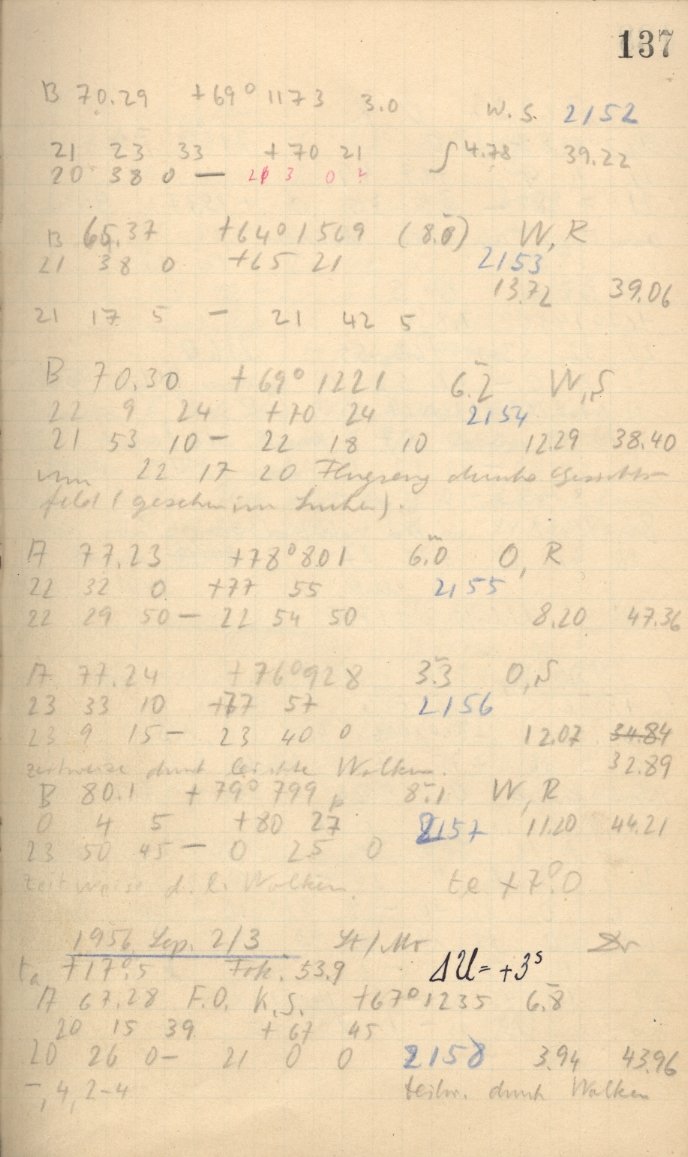 137
B 70.29 +69° 1173 3.0 W.S. 2152
21 23 33 +70 21 4.78 39.22
20 38 0 — 21 3 0
B 65.37 +64° 1569 (8.8) W, R
21 38 0 +65 21 2153
13.72 39.06
21 17 5 — 21 42 5
B 70.30 +69° 1221 6.2 W, S
22 9 24 +70 24 2154
21 53 10 — 22 18 10 12.29 38.40
um 22 17 20 Flugzeug durchs Gesichts-
feld (gesehen im Sucher).
A 77.23 +78° 801 6.0 O, R
22 32 0 +77 55 2155
22 29 50 — 22 54 50 8.20 47.36
A 77.24 +76° 928 3.3 O, S
23 33 10 +77 57 2156
23 9 15 — 23 40 0 12.07 34.84
32.89
zeitweise durch leichte Wolken.
B 80.1 +79° 799 8.1 W, R
0 4 5 +80 27 2157 11.20 44.21
23 50 45 — 0 25 0
zeitweise d. l. Wolken. te +7°.0
1956 Sep. 2/3 St/Mr
ta +17°.5 Fok. 53.9 ΔU = +3s
A 67.28 F.O. K.S. +67° 1235 6.8
20 15 39 +67 45
20 26 0 — 21 0 0 2158 3.94 43.96
–, 4, 2–4 teilw. durch Wolken